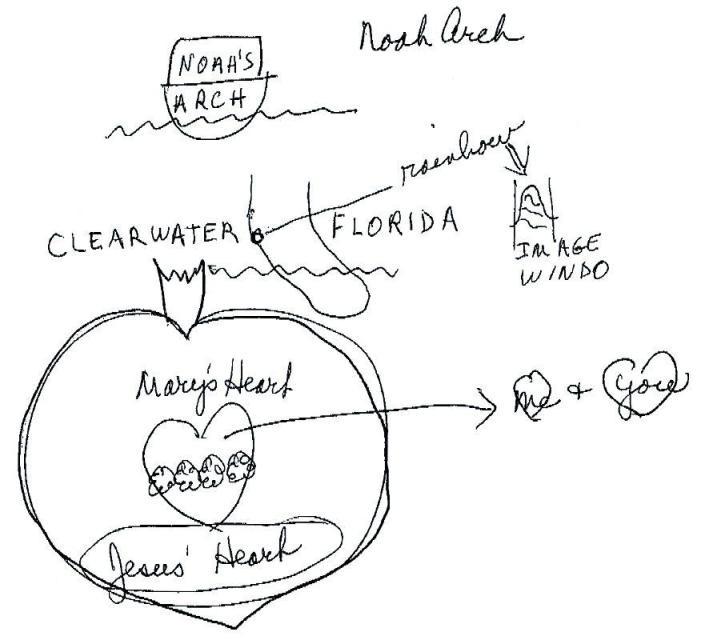 Noah Arch
NOAH'S
ARCH
rainbow
CLEARWATER
FLORIDA
IMAGE
WINDO
Mary's Heart
me & you
Jesus' Heart